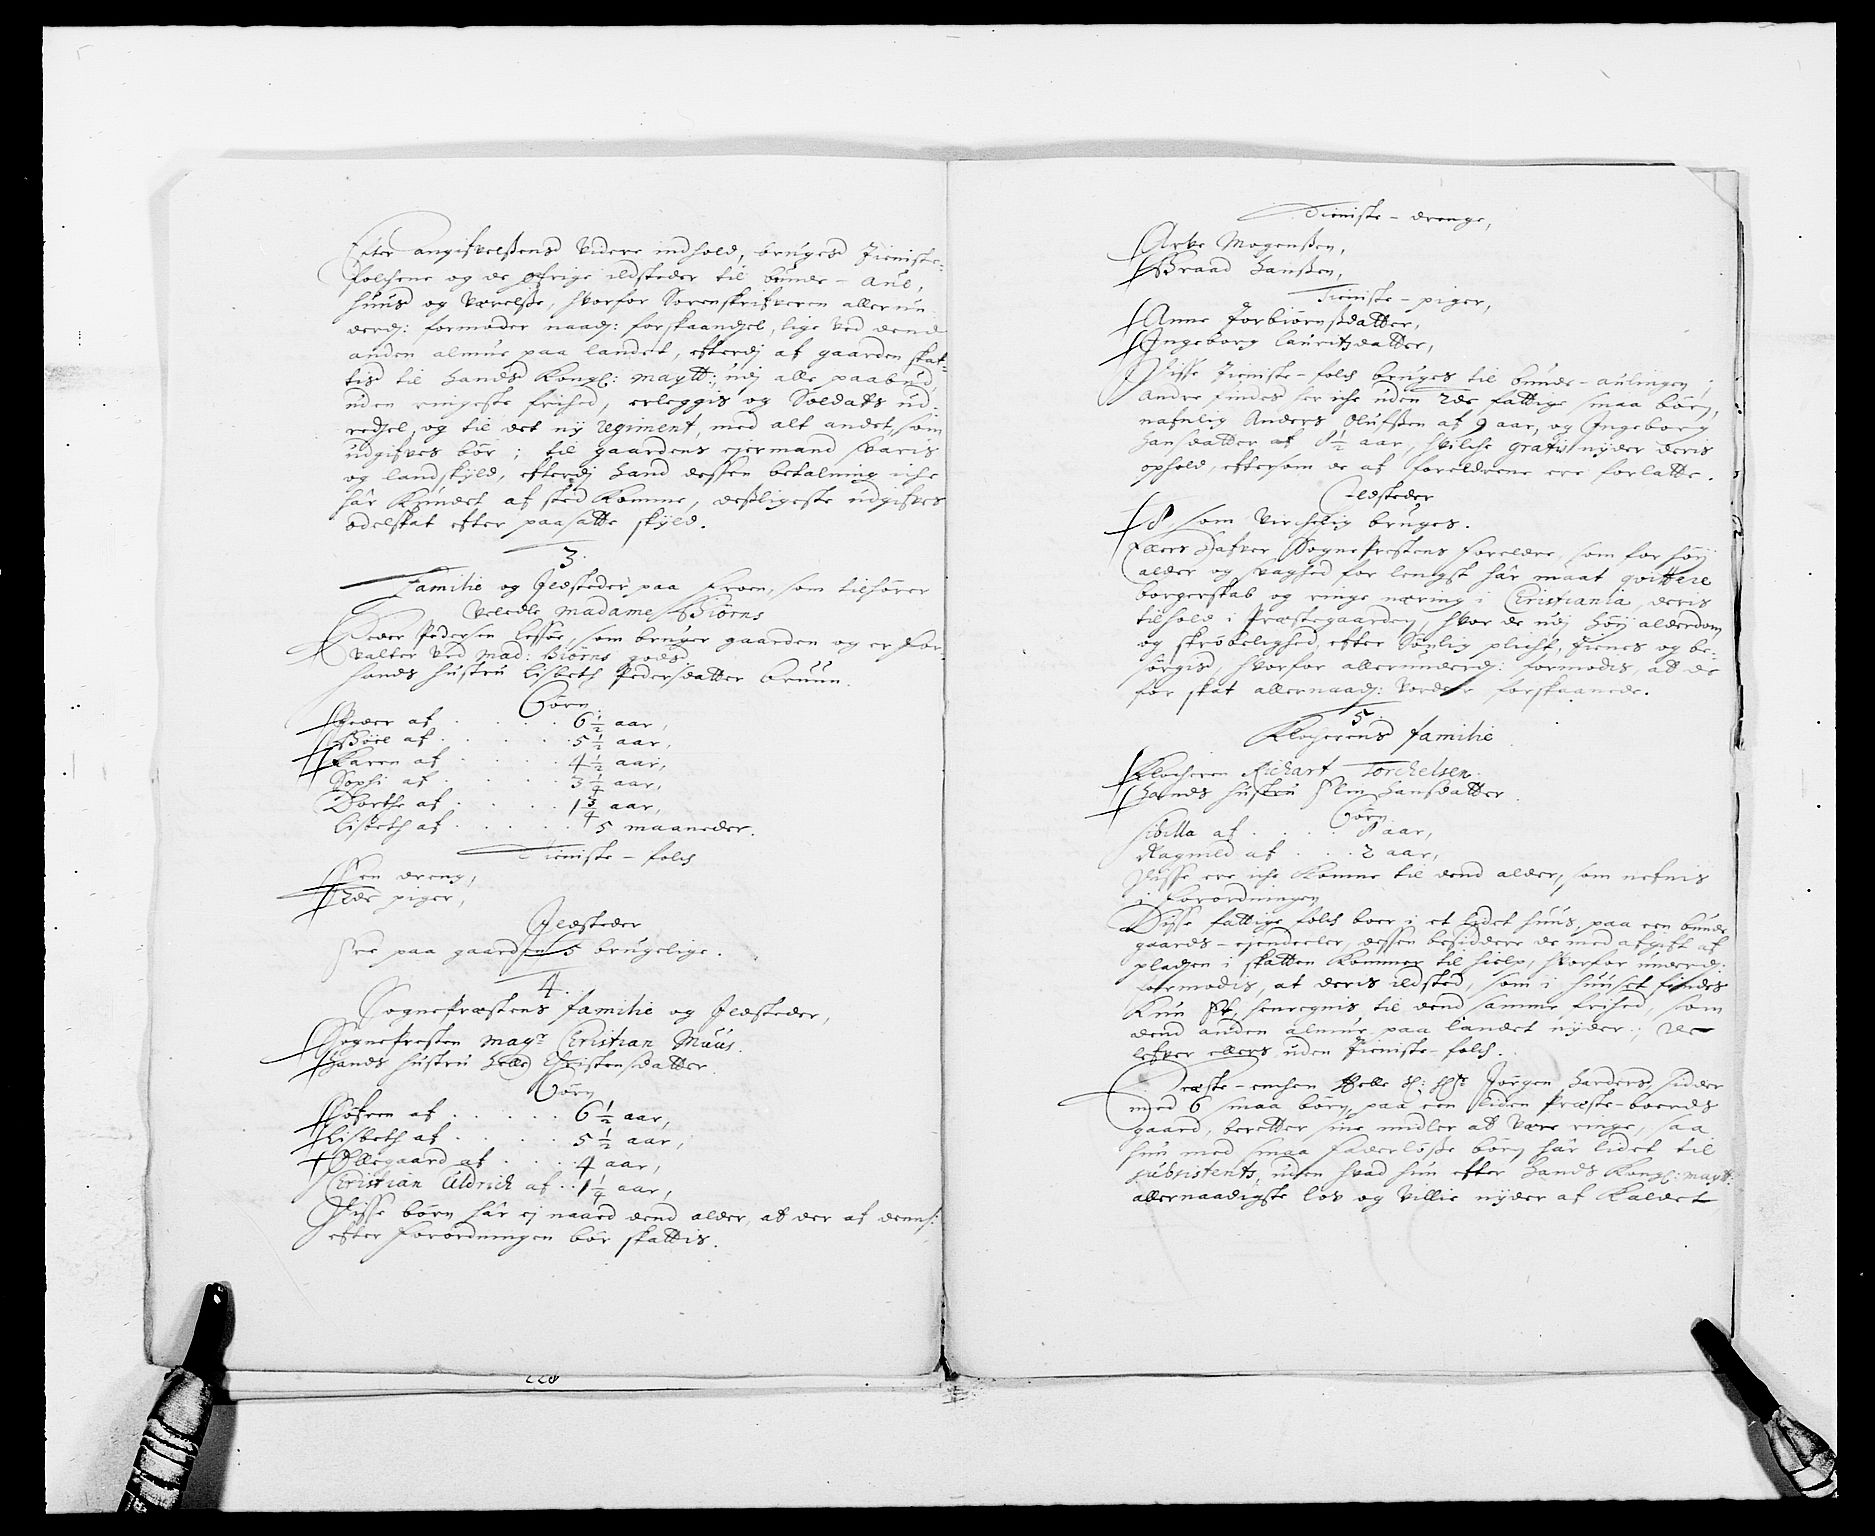 Efter angifvelßens videre indhold, bruges Tieniste-
folchene og de øfrige ildsteder til bunde-aul,
huus og værelße, hvorfor Sorenskrifveren allerun
derdj: formoder naadj: forskaandsel, lige ved dend
anden almue paa landet, efterdj af gaarden skat-
tis til hands Kongl: maytt:, udj alle paabud,
uden ringeste frihed, erleggis og Soldats ud,
redsel, og til det nÿ regiment, med alt andet, som
udgifves bør; til gaardens ejermand svaris
og landskÿld, efterdj hand dessen betalning iche
har kundet af sted komme, desligeste udgifves
odelskat efter paasatte skÿld.
3.
Familie og Ildsteder paa Froen, som tilhører
Veledle madame Biørns
Peder Pedersen Lessøe, som bruger gaarden og er For-
valter ved Mad: Biørns gods
hands hustru Lisbeth Pedersdatter Bruun.
Børn
Peder af . . . . 6½ aar,
Bøel af . . . . 5½ aar,
Karen af . . . . 4½ aar,
Sophi af . . . . 3¼ aar,
Dorthe af . . . . 1¾ aar,
Lisbeth af . . . . 5 maaneder.
Tieniste-folch
Een dreng,
2de piger,
Ildsteder
ere paa gaarden 5 brugelige.
4.
Sognepræstens familie og Ildsteder,
Sognepresten mag<sup>r</sup> Christian Muus.
hands hustru Helle Christensdatter.
Børn
Søfren af . . . . 6½ aar,
Lisbeth af . . . . 5½ aar,
Ollegaard af . . . 4 aar,
Christian Uldrich af . . 1¼ aar,
Disse børn har ej naaed dend alder, at der af dennem
efter Forordningen bør skattis.
228
Tieniste-drenge,
Arve Mogenßen,
Braad Hanßen,
Tieniste-piger,
Anne Torbiørnsdatter,
Ingeborg Lauritzdatter,
Disse Tieniste-folch bruges til bunde-aulingen;
Andre findes her iche uden 2de fattige smaa børn,
nafnlig Anders Olufßen af 9 aar, og Ingeborg
Hansdatter af 8½ aar, hvilche gratis nÿder deris
ophold, eftersom de af foreldrene ere forlatte.
Ildsteder
8 som virchelig bruges.
Ellers hafver SognePrestens Foreldre, som for høÿ
alder og svaghed for lengst har maat qvittere
borgerskab og ringe næring i Christiania, deris
tilhold i Præstegaarden, hvor de udj høÿ alderdom
og skrøbelighed, efter Sønlig plicht, tienes og be-
sørgis, hvorfor allerunderdj: formodis, at de
for skat allernaadj: vorder forskaanede.
5
Klocherens familie
Klocheren Richart Torchelsen
hands hustru Elin Hansdatter.
Børn
Sibilla af . . . . 8 aar,
Ragnild af . . . 2 aar,
Disse ere iche komne til dend alder, som nefnis
i Forordningen
Disse fattige folch boer i et lidet huus, paa een bunde
gaards-ejendeeler, dessen besiddere de med afgift af
pladsen i skatten kommer til hielp, hvorfor underdj:
formodis, at deris ildsted, som i huuset findes
kun et, henregnis til dend samme frihed, som
dend anden almue paa landet nÿder; de
lefver ellers uden Tieniste-folch.
Præste-enchen Jørgen Harders, sidder
med 6 smaa børn, paa een liden Præste-boerds
gaard, beretter sine midler at være ringe, saa
hun med smaa faderløße børn har lidet til
subsistents, uden hvad hun efter hands Kongl: maytt:
allernaadigste lov og villie nÿder af kaldet